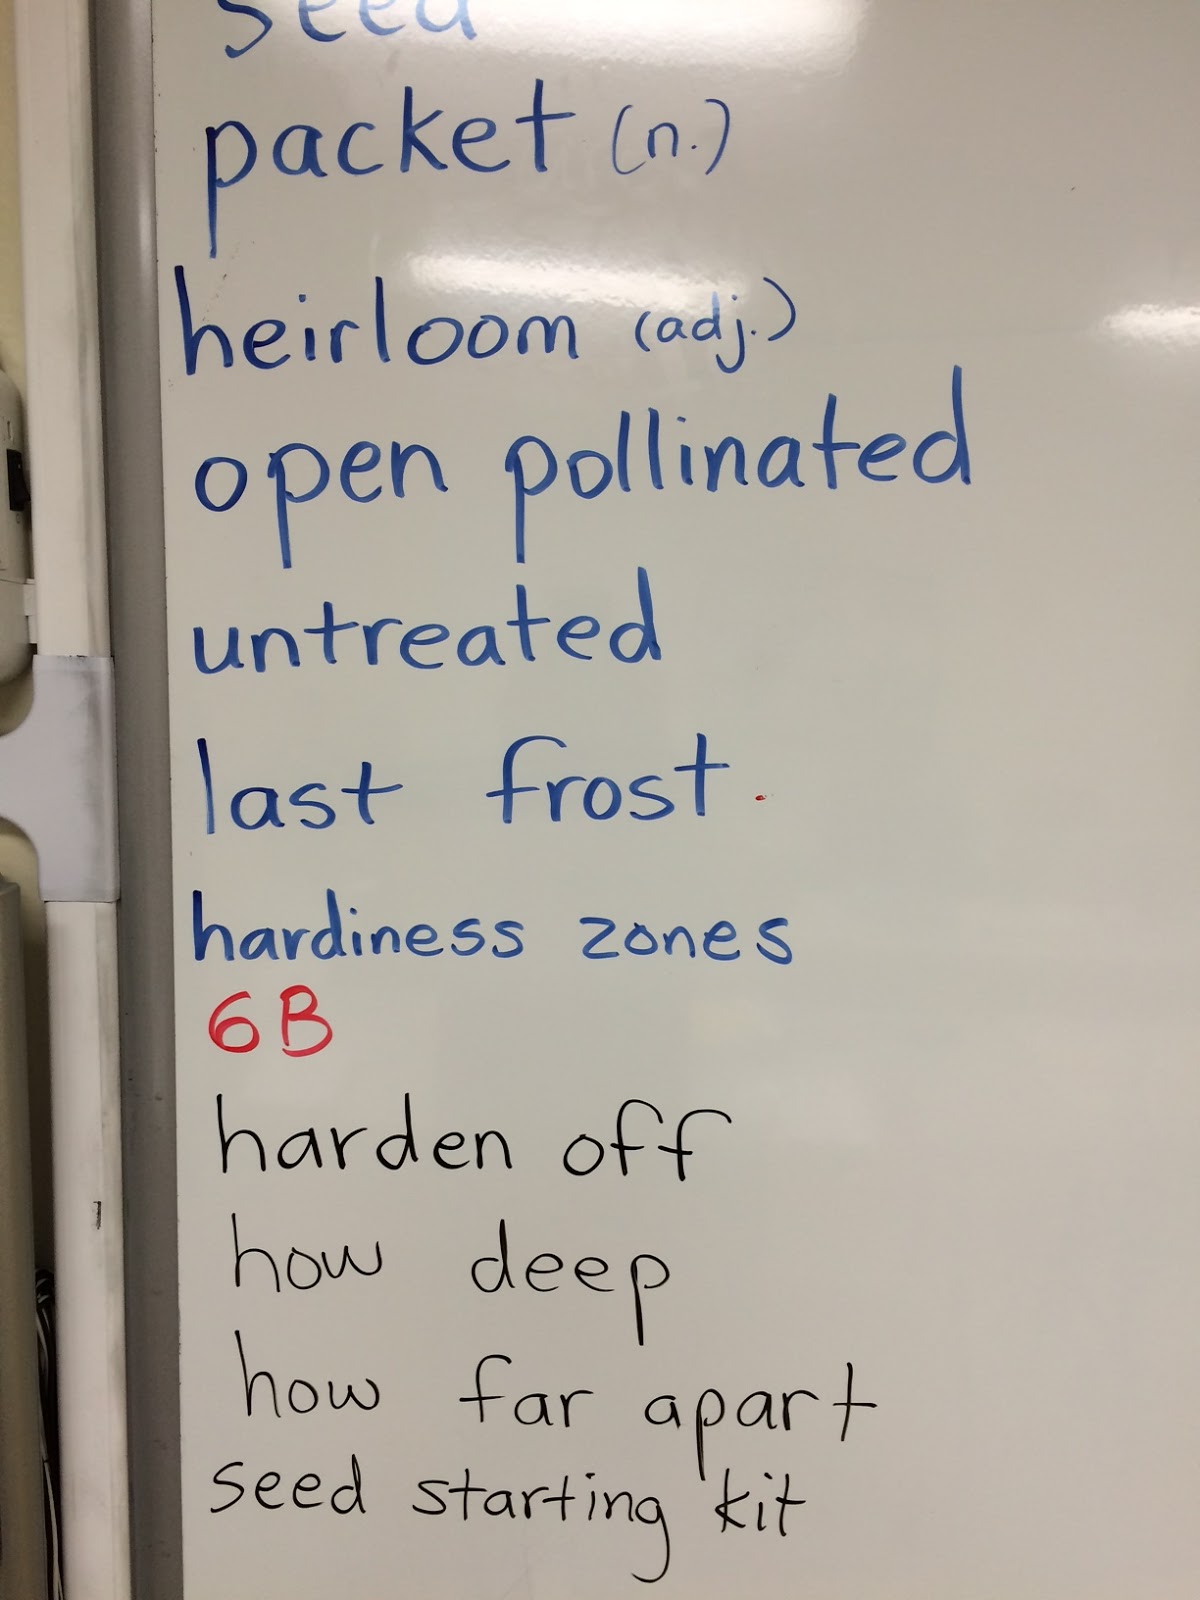 seed
packet (n.)
heirloom (adj.)
open pollinated
untreated
last frost
hardiness zones
6B
harden off
how deep
how far apart
seed starting kit